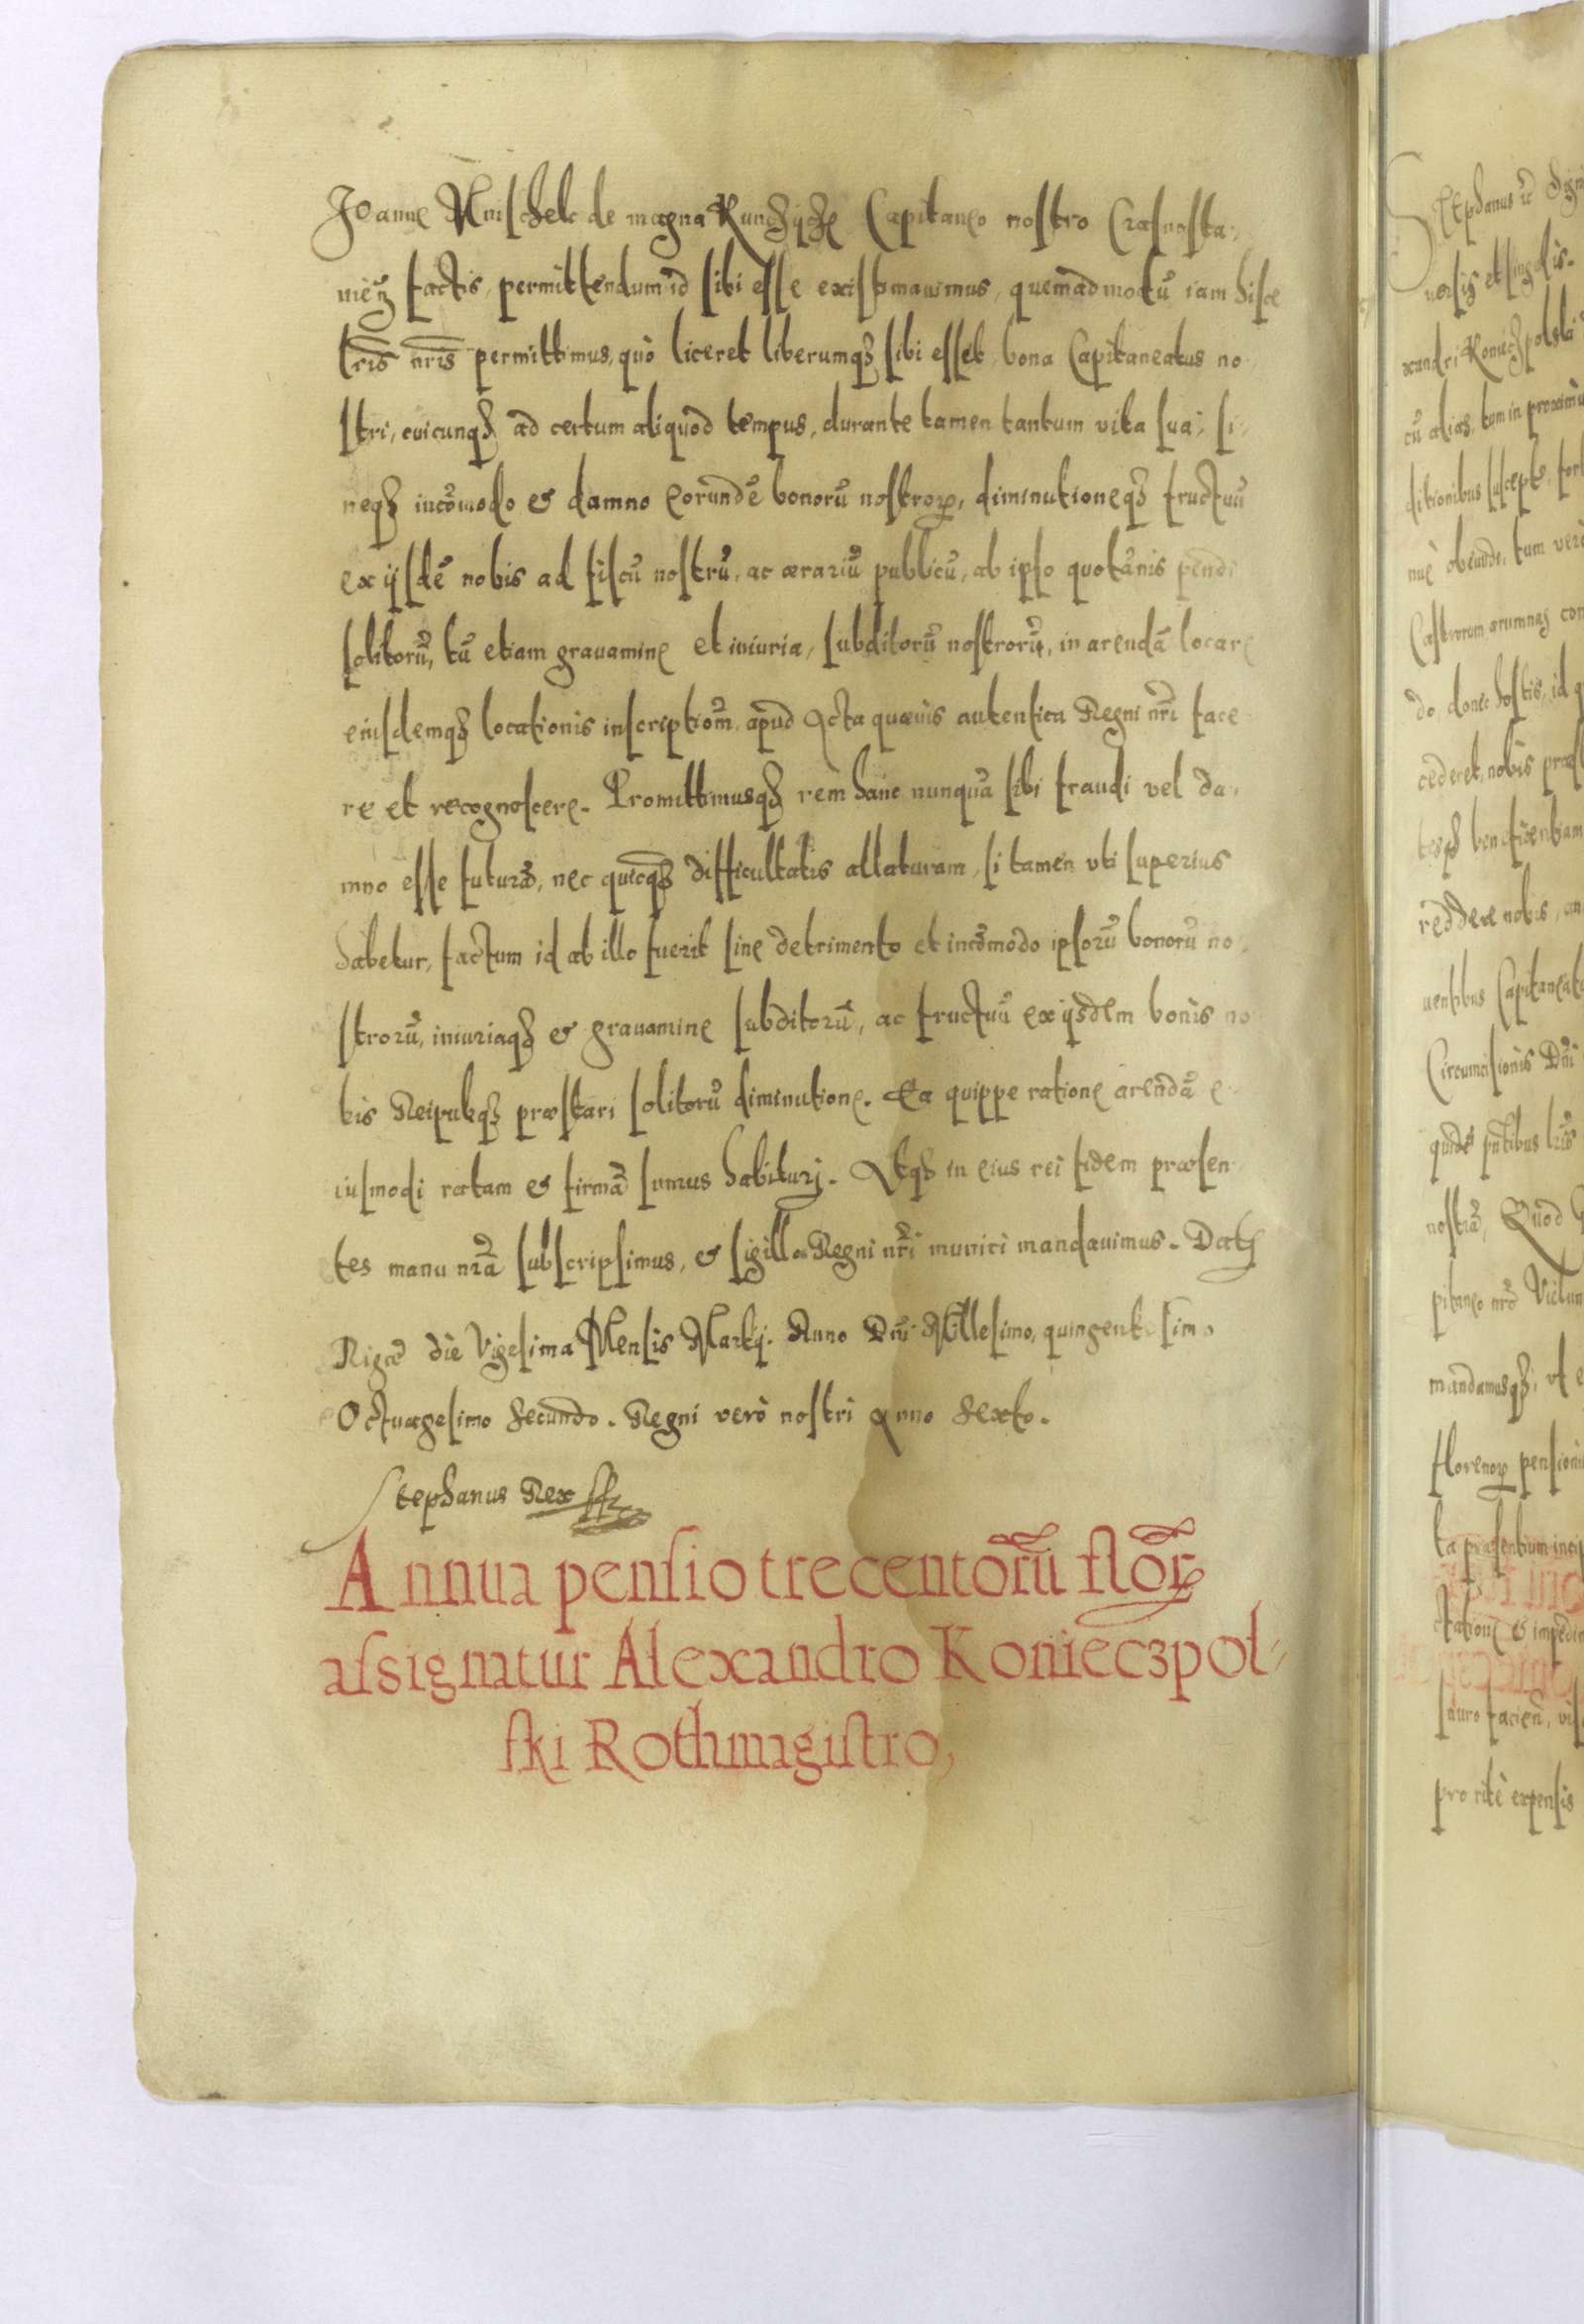 Joanne Mnischek de magna Kunczycze Capitaneo nostro Crasnosta-
vieñ factis, permittendum id sibi esse existimavimus, quemadmodũ iam hisce
lr̃is nr̃is permittimus, quò liceret liberumqȝ sibi esset, bona Capitaneatus no-
stri, cuicunqȝ ad certum aliquod tempus, durante tamen tantum vita sua, si-
neqȝ incõmodo et damno eorundẽ bonorũ nostroꝝ, diminutioneqȝ fructuũ
ex ijsdẽ nobis ad fiscũ nostrũ, ac ærariũ publicũ, ab ipso quotãnis pendi
solitorũ, tũ etiam gravamine et iniuria, subditorũ nostrorũ, in arendã locare
eiusdemqȝ locationis inscriptionẽ, apud Acta quævis autentica Regni nr̃i face-
re et recognoscere. Promittimusqȝ rem hanc nunquã sibi fraudi vel da-
mno esse futurã, nec quicqȝ difficultatis allaturam, si tamen uti superius
habetur, factum id ab illo fuerit sine detrimento et incõmodo ipsorũ bonorũ no-
strorũ, iniuriaqȝ et gravamine subditorũ, ac fructuũ ex ijsdem bonis no-
bis Reipubqȝ præstari solitorũ diminutione. Ea quippe ratione arendã e-
iusmodi ratam et firmã sumus habituri. Utqȝ in eius rei fidem præsen-
tes manu nr̃a subscripsimus, et sigillo Regni nr̃i muniri mandavimus. Datȝ
Rigæ die Vigesima Mensis Martij. Anno Dñi Millesimo, quingentesimo
Octuagesimo secundo. Regni verò nostri anno sexto.
Stephanus Rex sst
Annua pensio trecentorũ floꝝ
assignatur Alexandro Konieczpol-
ski Rothmagistro,
Stephanus
xandri Konieczpolski
cũ alias, tum in proximi
ditionibus suscepto
Castrorum ærumnas con
do, donec hostis, id
cederet, nobis
reddere nobis
Circumcisionis Dñi
nostrã, Quod
mandamusqȝ, ut
pro ritè expensis